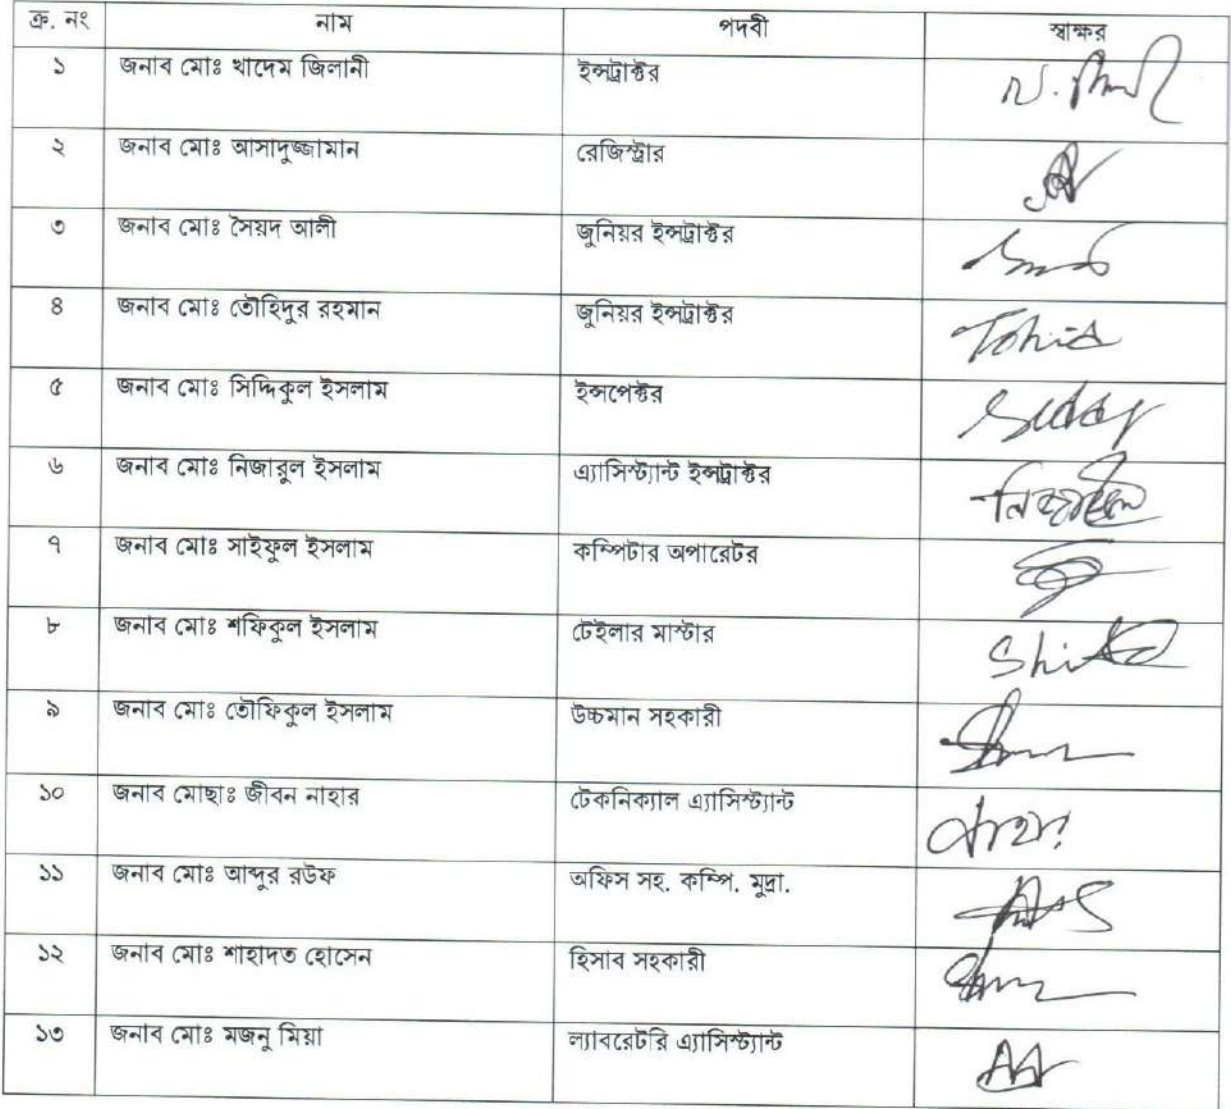 ক্র. নং নাম পদবী স্বাক্ষর
১ জনাব মোঃ খাদেম জিলানী ইন্সট্রাক্টর
২ জনাব মোঃ আসাদুজ্জামান রেজিস্ট্রার
৩ জনাব মোঃ সৈয়দ আলী জুনিয়র ইন্সট্রাক্টর
৪ জনাব মোঃ তৌহিদুর রহমান জুনিয়র ইন্সট্রাক্টর Tohid
৫ জনাব মোঃ সিদ্দিকুল ইসলাম ইন্সপেক্টর
৬ জনাব মোঃ নিজারুল ইসলাম এ্যাসিস্ট্যান্ট ইন্সট্রাক্টর
৭ জনাব মোঃ সাইফুল ইসলাম কম্পিটার অপারেটর
৮ জনাব মোঃ শফিকুল ইসলাম টেইলার মাস্টার
৯ জনাব মোঃ তৌফিকুল ইসলাম উচ্চমান সহকারী
১০ জনাব মোছাঃ জীবন নাহার টেকনিক্যাল এ্যাসিস্ট্যান্ট
১১ জনাব মোঃ আব্দুর রউফ অফিস সহ. কম্পি. মুদ্রা.
১২ জনাব মোঃ শাহাদত হোসেন হিসাব সহকারী
১৩ জনাব মোঃ মজনু মিয়া ল্যাবরেটরি এ্যাসিস্ট্যান্ট